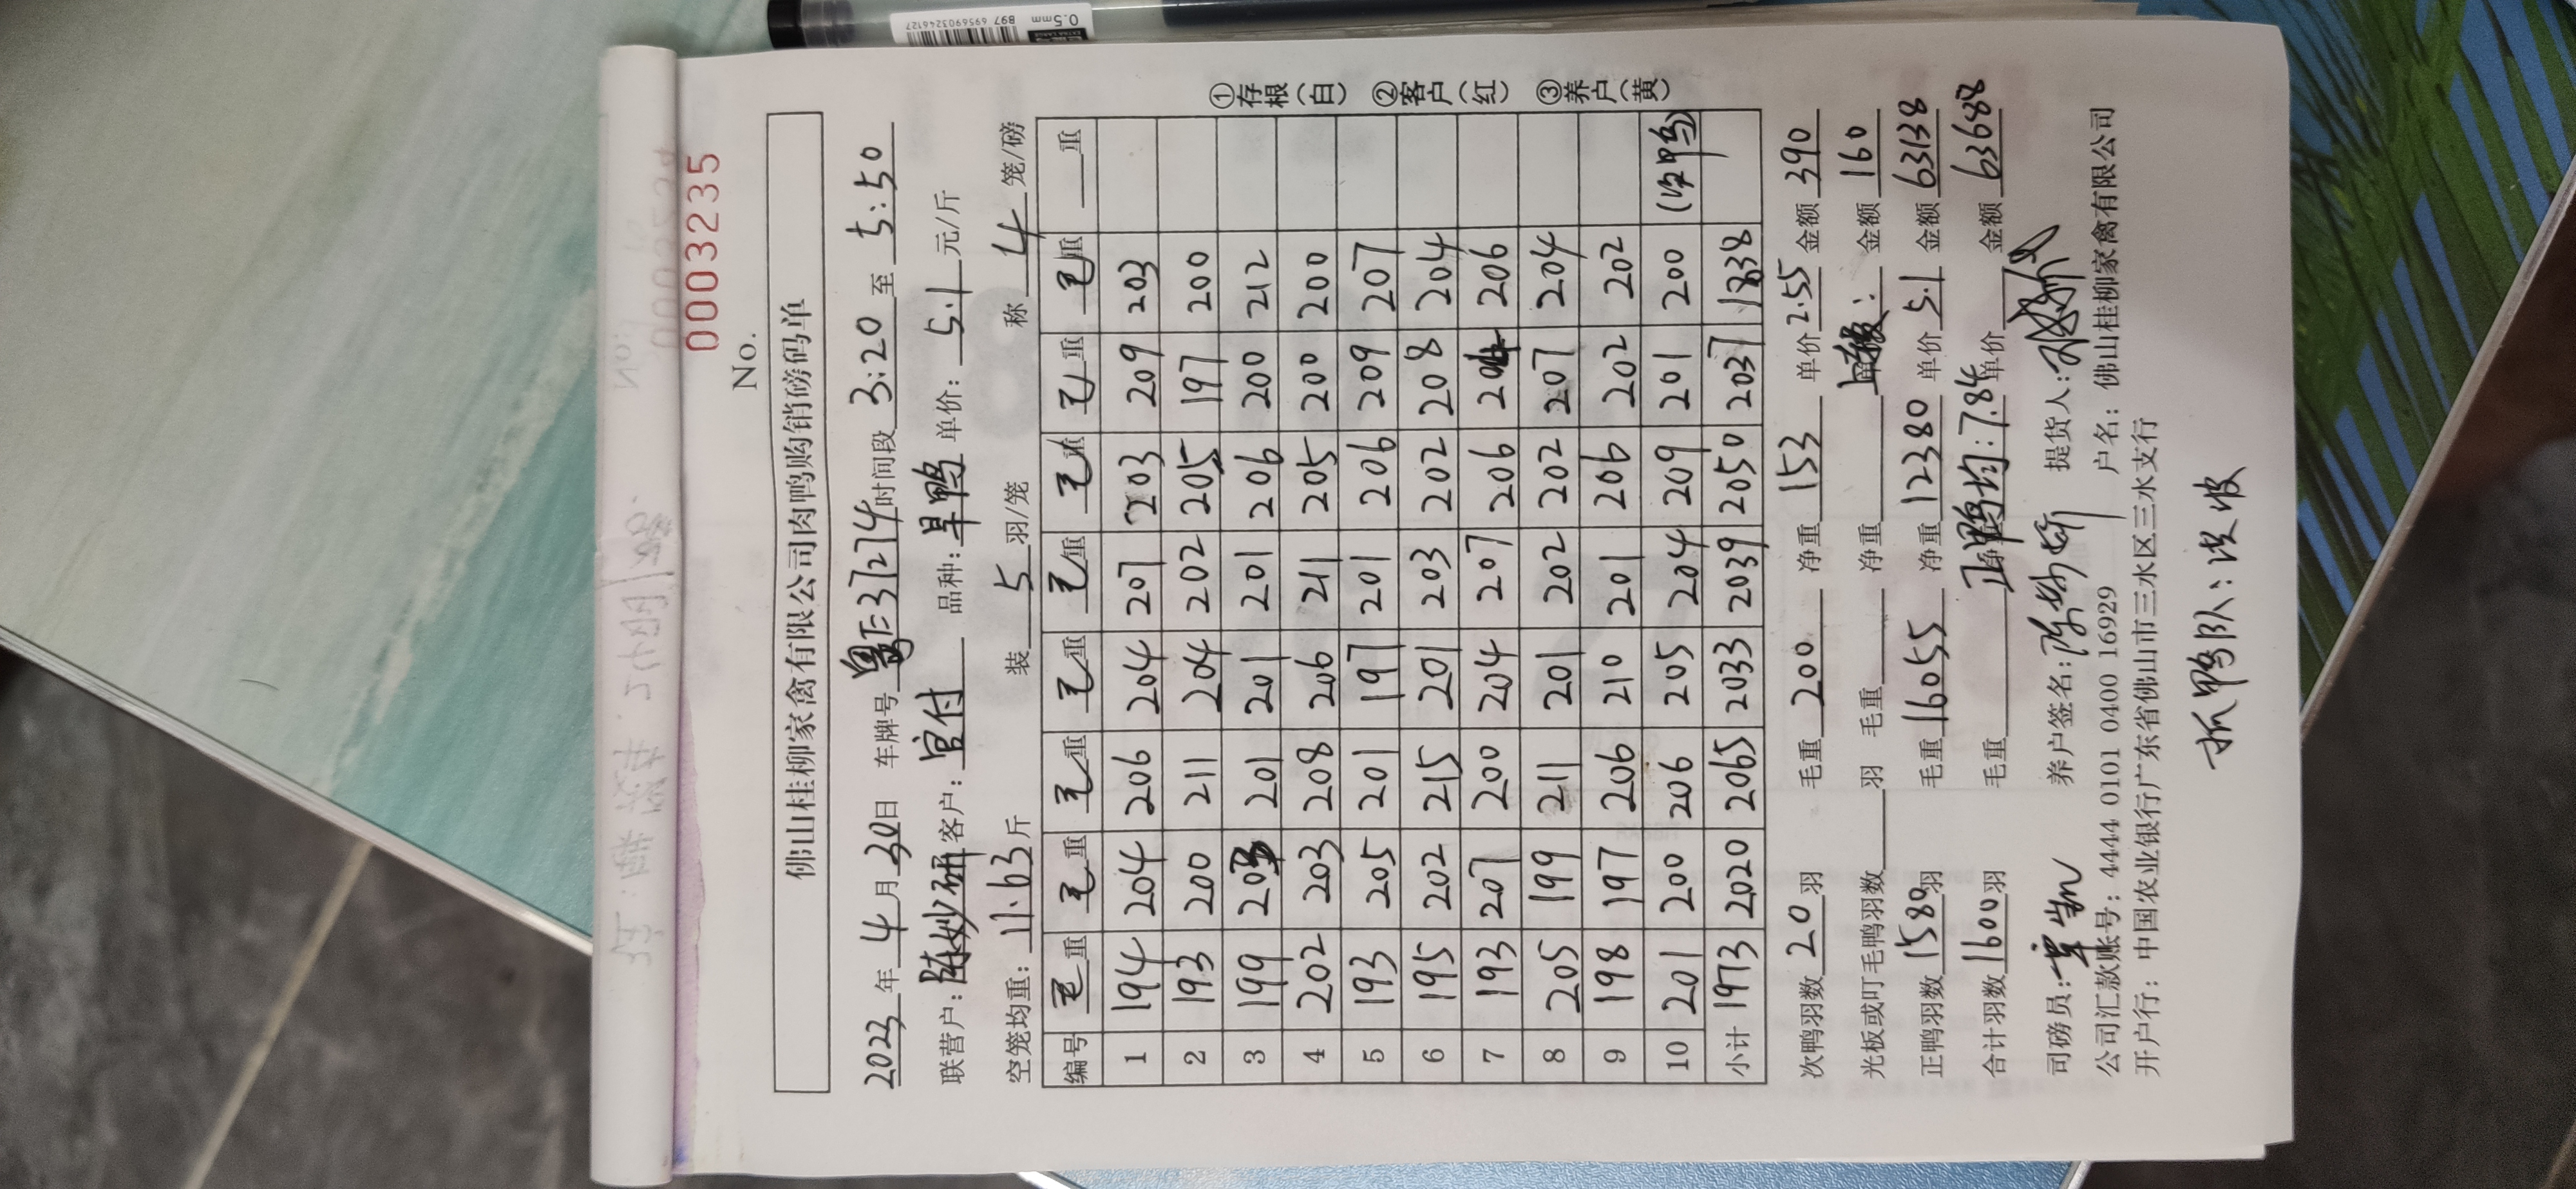 No. 0003235
佛山桂柳家禽有限公司肉鸭购销磅码单
2023年4月30日 车牌号粤E37274时间段3:20至5:50
联营户:陈妙研客户:官付 品种:旱鸭 单价:5.1元/斤
空笼均重:11.63斤 装5羽/笼 称4笼/磅
编号 毛重 毛重 毛重 毛重 毛重 毛重 毛重 毛重 重
1 194 204 206 204 207 203 209 203
2 193 200 211 204 202 205 197 200
3 199 203 201 201 201 206 200 212
4 202 203 208 206 211 205 200 200
5 193 205 201 197 201 206 209 207
6 195 202 215 201 203 202 208 204
7 193 207 200 204 207 206 204 206
8 205 199 211 201 202 202 207 204
9 198 197 206 210 201 206 202 202
10 201 200 206 205 204 209 201 200 (次鸭)
小计 1973 2020 2065 2033 2039 2050 2037 1838
①存根(白) ②客户(红) ③养户(黄)
次鸭羽数20羽 毛重200 净重153 单价2.55金额390
光板或叮毛鸭羽数 羽 毛重 净重 : 金额160
正鸭羽数1580羽 毛重16055净重12380单价5.1金额63138
合计羽数1600羽 毛重 正鸭均:7.84 单价 金额63688
司磅员: 养户签名: 提货人:
公司汇款账号:4444 0101 0400 16929 户名:佛山桂柳家禽有限公司
开户行:中国农业银行广东省佛山市三水区三水支行
抓鸭队:波
0.5mm
B97 6956690324612​7